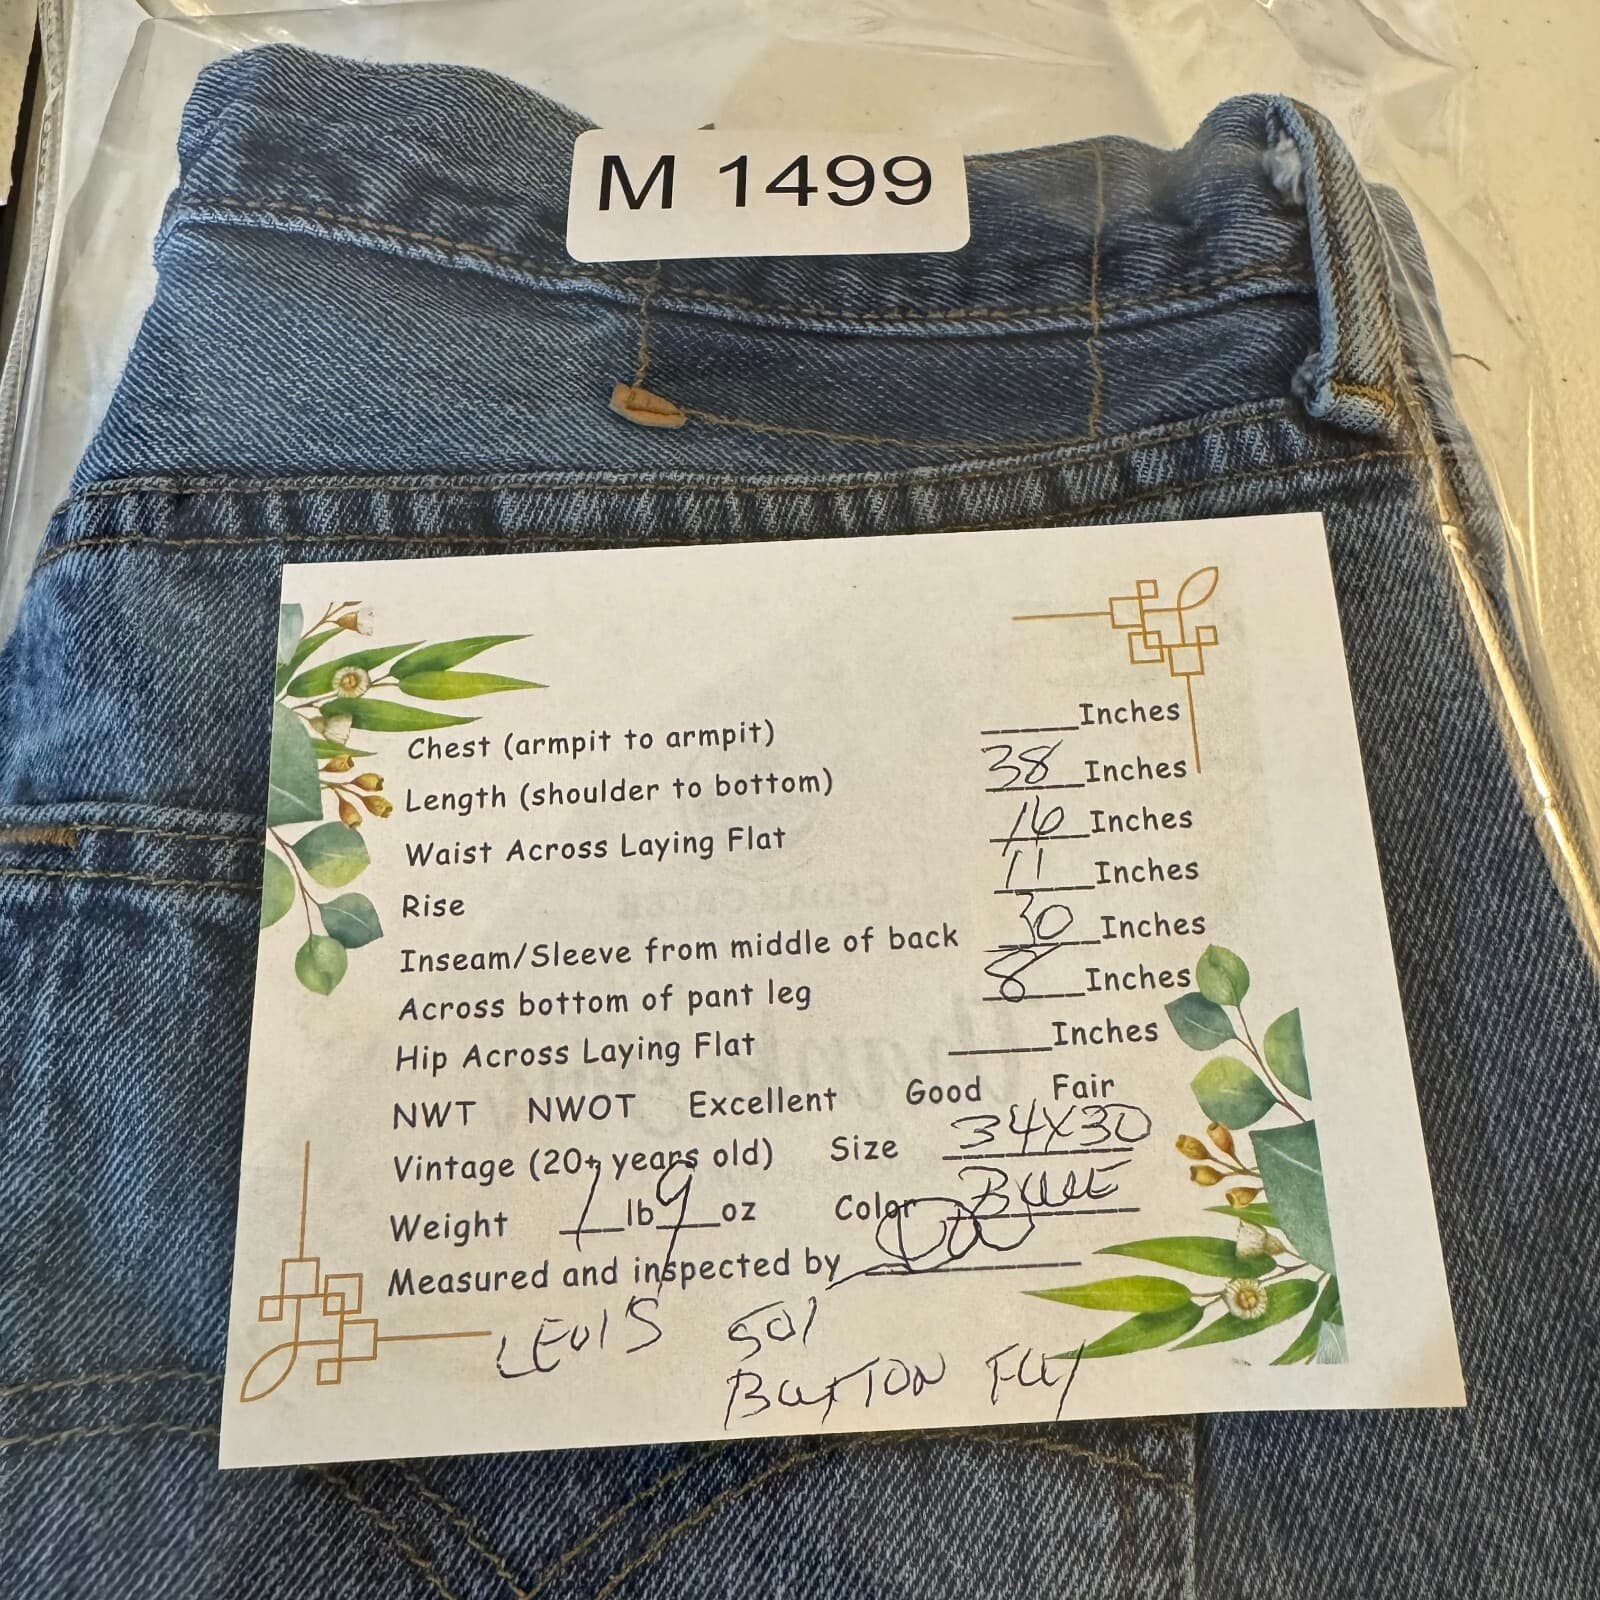 M 1499
Chest (armpit to armpit) _____Inches
Length (shoulder to bottom) 38 Inches
Waist Across Laying Flat 16 Inches
Rise 11 Inches
Inseam/Sleeve from middle of back 30 Inches
Across bottom of pant leg 8 Inches
Hip Across Laying Flat _____Inches
NWT NWOT Excellent Good Fair
Vintage (20+ years old) Size 34X30
Weight 1 lb 9 oz Color BLUE
Measured and inspected by
LEVI'S 501
BUTTON FLY